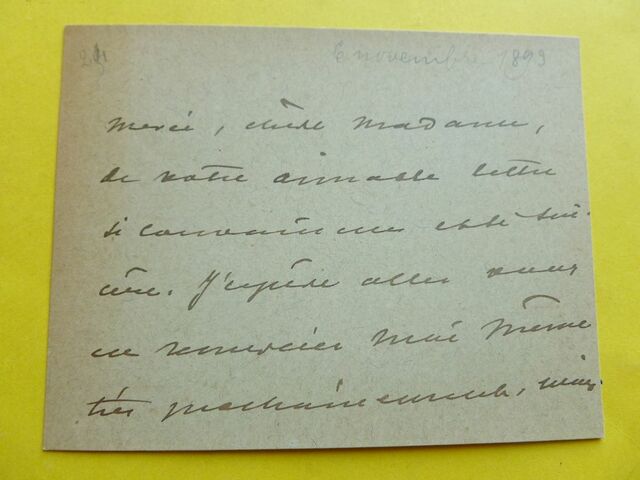 6 novembre 1893
Merci, chère Madame,
de votre aimable lettre
si convaincue et si sin-
cère. J'espère aller vous
en remercier moi même
très prochainement, mais